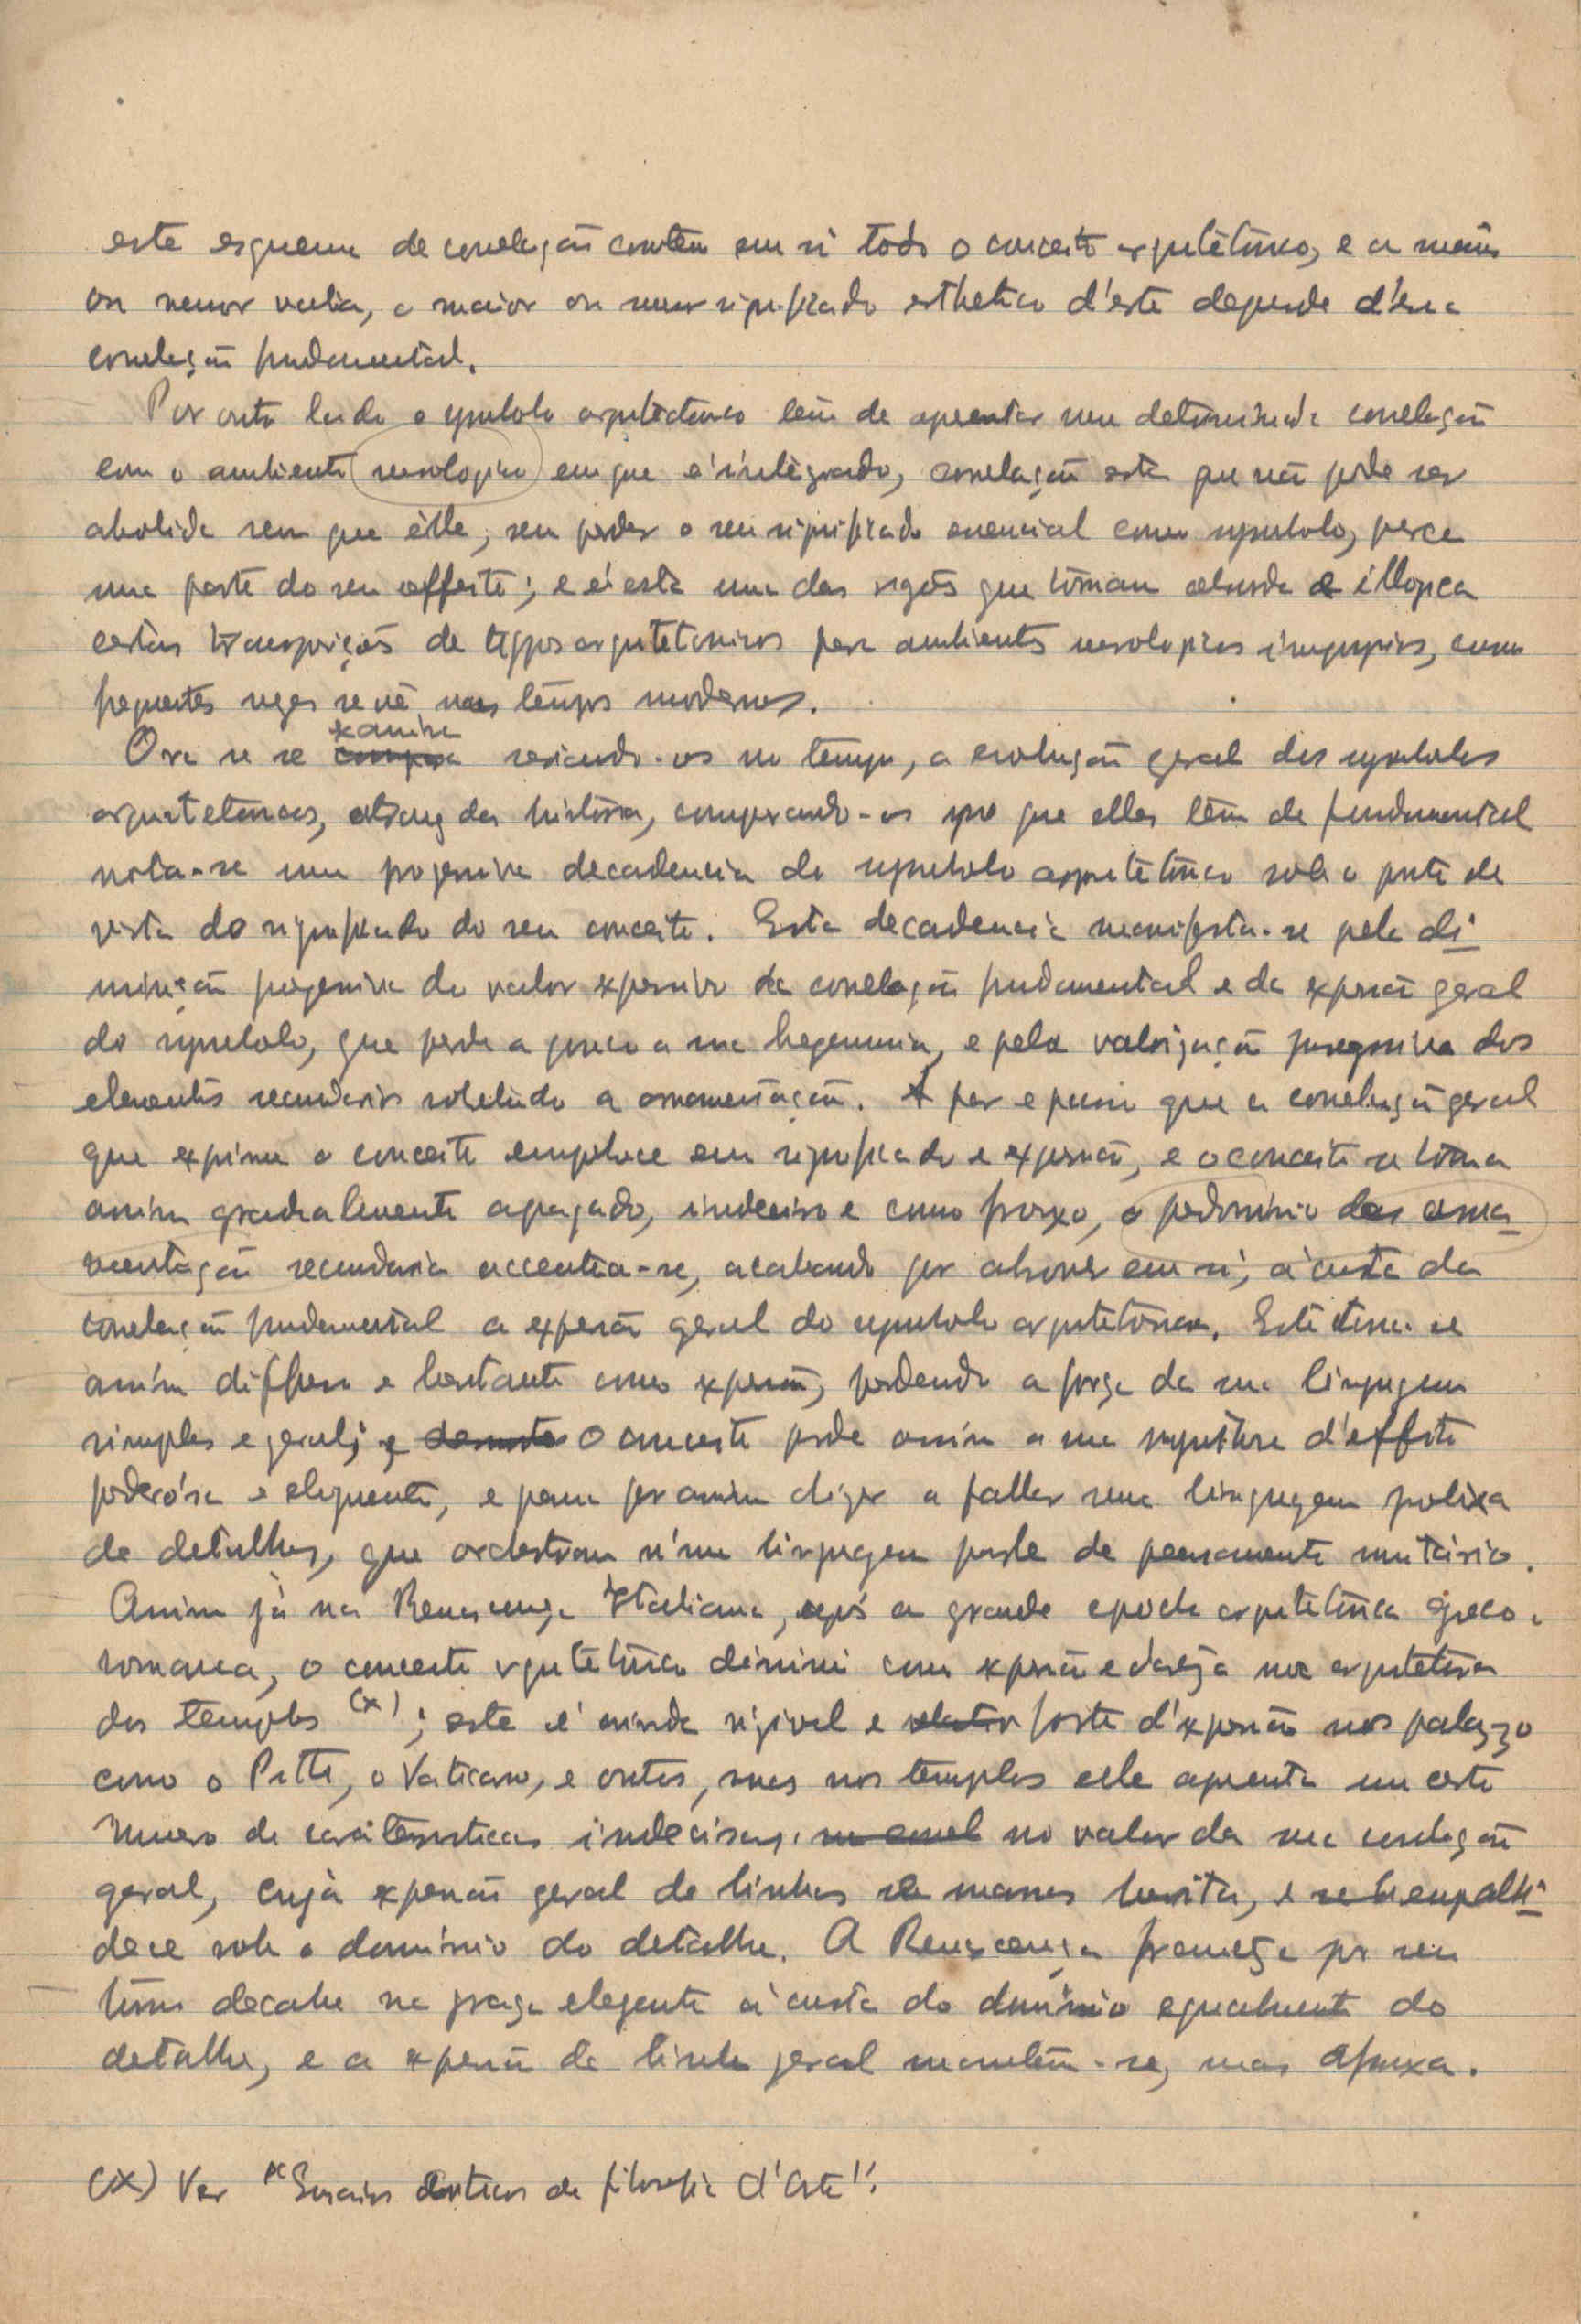 este esquema de correlação contém em si todo o conceito arquitetónico, e a maior
ou menor valia, o maior ou menor significado esthetico d'este depende d'essa
correlação fundamental.
Por outro lado o symbolo arquitectonico tem de apresentar uma determinada correlação
com o ambiente mesologico em que é integrado, correlação esta que não pode ser
abolida sem que êlle, sem perder o seu significado essencial como symbolo, perca
uma parte do seu effeito; e é esta uma das rasões que tornam absurda e illogica
certas transposições de typos arquitetonicos para ambientes mesologicos improprios, como
frequentes vezes se vê nos tempos modernos.
Ora se se examina seriando-os no tempo, a evolução geral dos symbolos
arquitetonicos, atravez da historia, comparando-os no que elles têm de fundamental
nota-se uma progressiva decadencia do symbolo arquitetónico sob o ponto de
vista do significado do seu conceito. Esta decadencia manifesta-se pela di
minuição progressiva do valor expressivo da correlação fundamental e da expressão geral
do symbolo, que perde a pouco a sua hegemonia, e pela valorização progressiva dos
elementos secundarios sobretudo a ornamentação. A par e passo que a correlação geral
que exprime o conceito empobrece em significado e expressão, e o conceito se torna
assim gradualmente apagado, indeciso e como frouxo, o predominio da orna
mentação secundaria accentua-se, acabando por absorver em si, à custa da
correlação fundamental a expressão geral do symbolo arquitetónico. Este torna-se
assim diffuso e hesitante como expressão, perdendo a força da sua linguagem
simples e geral; e o conceito perde assim a sua d'effeito
poderósa e eloquente, e passa por assim dizer a fallar uma linguagem prolixa
de detalhes, que orchestram n'uma linguagem pobre de pensamento unitário.
Assim já na Renascença Italiana, após a grande epocha arquitetónica greco-
romana, o conceito arquitetónico diminui como expressão e clareza na arquitetura
dos templos (x); este é ainda visivel e forte d'expressão nos palazzo
como o Pitti, o Vaticano, e outros, mas nos templos elle apresenta um certo
numero de caracteristicas indecisas, no valor da sua correlação
geral, cuja expressão geral de linhas se mostra hesita, e empalli
dece sob o dominio do detalhe. A Renascença franceza por seu
turno decahe na graça elegante à custa do dominio egualmente do
detalhe, e a expressão da linha geral mantém-se, mas afrouxa.
(x) Ver "Ensaios criticos de filosofia d'Arte".